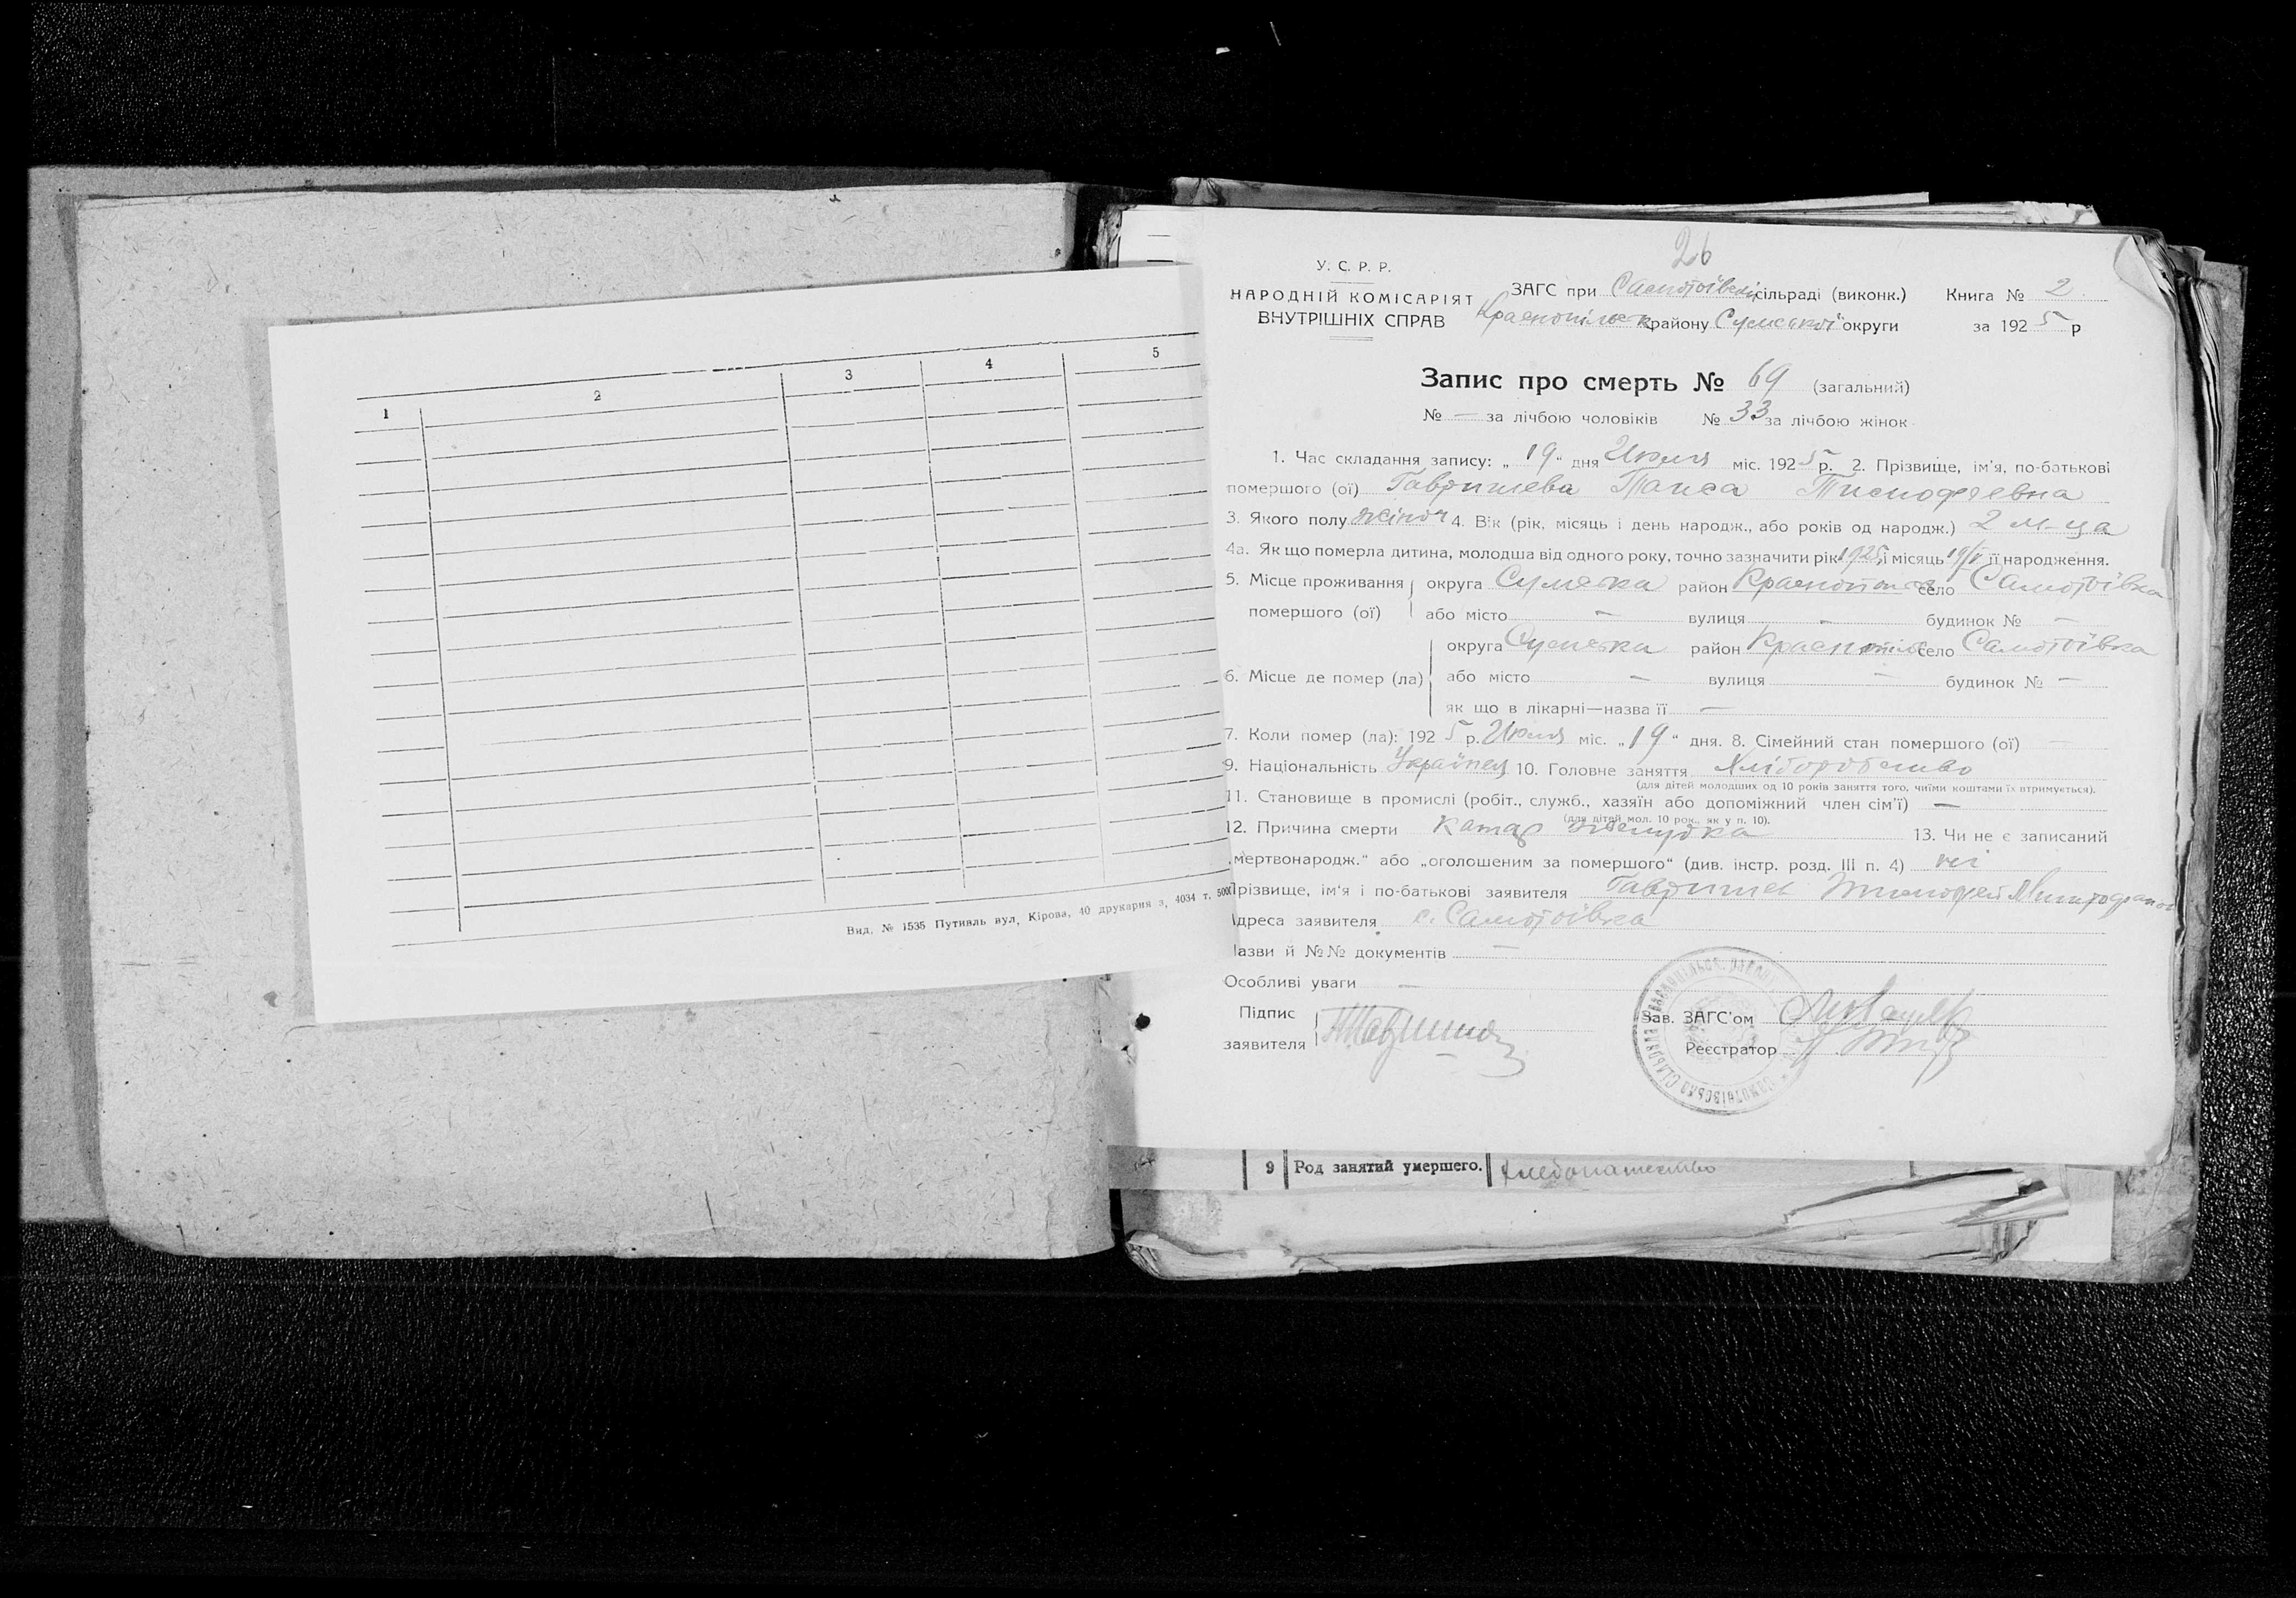 1 2 3 4 5
Вид. № 1535 Путивль вул, Кірова, 40 друкарня з, 4034 т. 5000
26
У. С. Р. Р.
НАРОДНІЙ КОМІСАРІЯТ
ВНУТРІШНІХ СПРАВ
ЗАГС при Самотоївській сільраді (виконк.) Книга № 2
Краснопільськ району Сумської округи за 1925 р
Запис про смерть № 69 (загальний)
№ — за лічбою чоловіків № 33 за лічбою жінок
1. Час складання запису: „19“ дня Июля міс. 1925 р. 2. Прізвище, ім'я, по-батькові
помершого (ої) Гавришева Таиса Тимофеевна
3. Якого полу жіноч 4. Вік (рік, місяць і день народж., або років од народж.) 2 м-ца
4а. Як що померла дитина, молодша від одного року, точно зазначити рік 1925 і місяць 19/V її народження.
5. Місце проживання округа Сумська район Краснопольск село Самотоївка
помершого (ої) або місто — вулиця — будинок № —
округа Сумська район Краснопіль село Самотоївка
6. Місце де помер (ла) або місто — вулиця — будинок № —
як що в лікарні—назва її —
7. Коли помер (ла): 1925 р. Июля міс. „19“ дня. 8. Сімейний стан помершого (ої) —
9. Національність Українец 10. Головне заняття Хліборобство
(для дітей молодших од 10 років заняття того, чиїми коштами їх втримується).
11. Становище в промислі (робіт., служб., хазяїн або допоміжний член сім'ї) —
(для дітей мол. 10 рок., як у п. 10).
12. Причина смерти Катар желудка 13. Чи не є записаний
„мертвонародж.“ або „оголошеним за помершого“ (див. інстр. розд. III п. 4) ні
Прізвище, ім'я і по-батькові заявителя Гавришев Тимофей Митрофанов
Адреса заявителя с. Самотоївка
Назви й №№ документів —
Особливі уваги —
Підпис
заявителя
Зав. ЗАГС'ом
Реєстратор
9 Род занятий умершего. хлебопашество